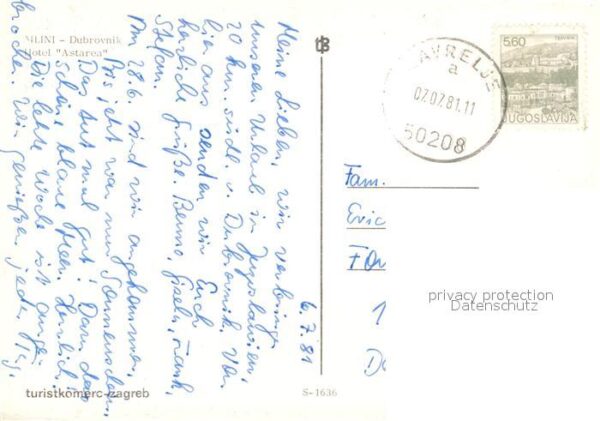 MLINI – Dubrovnik
Hotel "Astarea"
6.7.81
Meine Lieben, wir verbringen
unseren Urlaub in Jugoslawien,
20 km. südl. v. Dubrovnik. Von
hier aus senden wir Euch
herzliche Grüße. Benno, Gisela, Frank,
Stefan.
Am 28.6. sind wir angekommen.
Bis jetzt war nur Sonnenschein.
Das tut mal gut! Dann das
schöne blaue Meer. Herrlich!
Die letzte Woche ist ange-
brochen. Wir genießen jeden Tag.
turistkomerc-zagreb
S-1636
a
07.07.81.11
50208
5,60
TRAVNIK
JUGOSLAVIJA
Fam.
privacy protection
Datenschutz